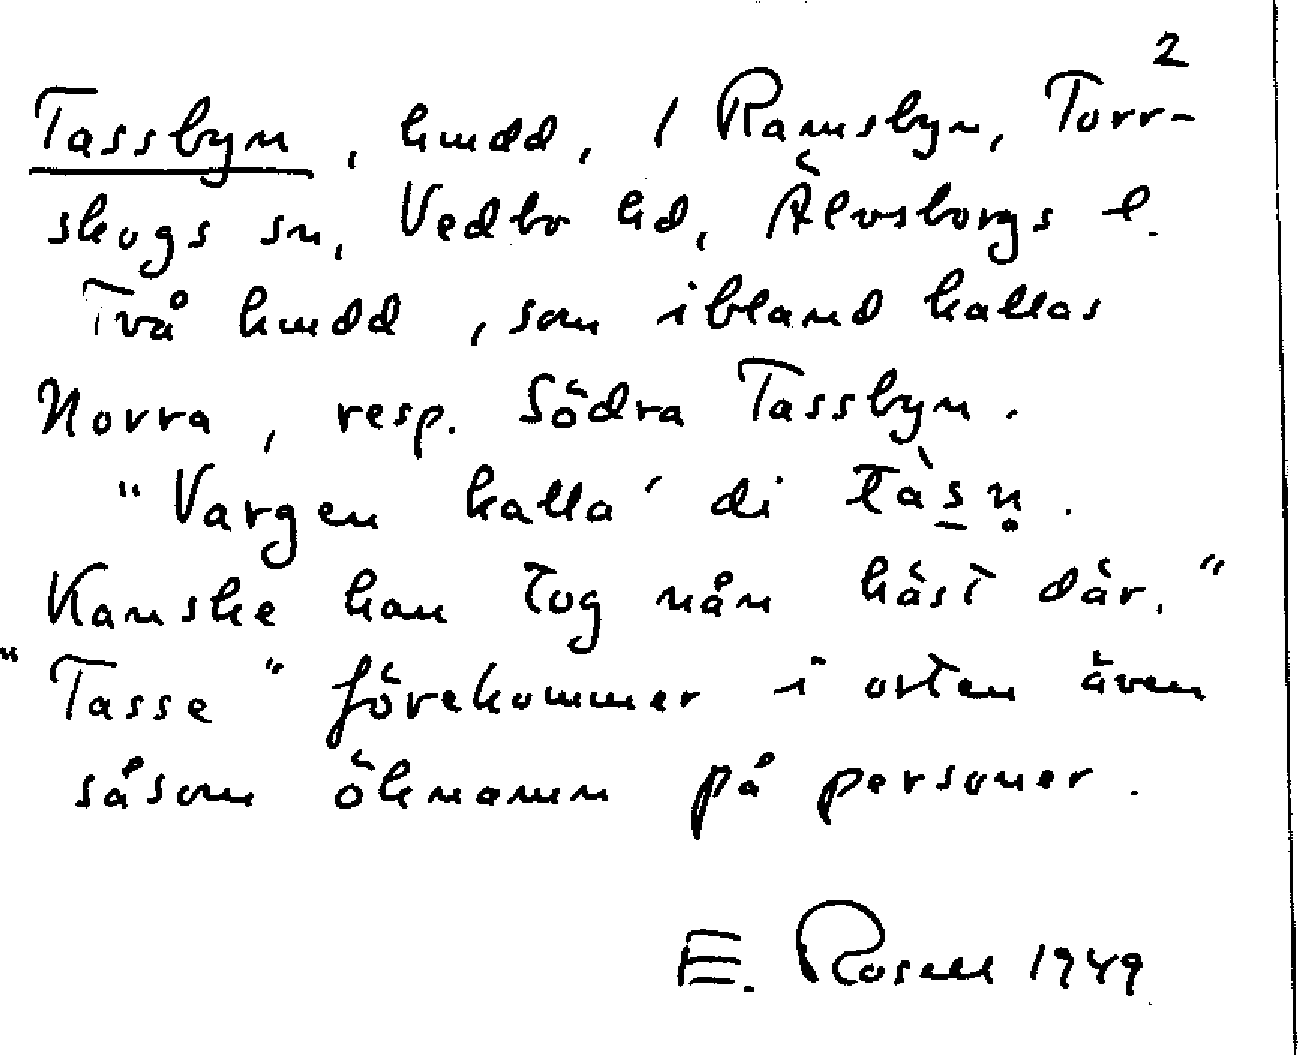 2
Tassbyn, hmdd, / Ramsbyn, Torr-
skogs sn, Vedbo hd, Älvsborgs l.
Två hmdd, som ibland kallas
Norra, resp. Södra Tassbyn.
"Vargen kalla' di tàs̠n̥.
Kanske han tog nån häst där."
"Tasse" förekommer i orten även
såsom öknamn på personer.
E. Rosell 1949